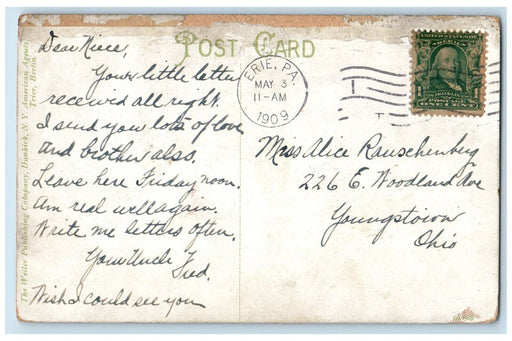 POST CARD
Dear Niece,
Your little letter
received all right.
I send you lots of love
and brother also.
Leave here Friday noon.
Am real well again.
Write me letters often.
Your Uncle Fred.
Wish I could see you
ERIE, PA.
MAY 3
11-AM
1909
Miss Alice Rauschenberg
226 E. Woodland Ave
Youngstown
Ohio
The Weiler Publishing Company, Dunkirk, N. Y. American Agents
Trier, Berlin.